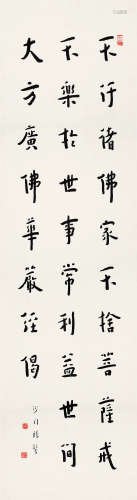 不汙諸佛家不捨菩薩戒
不樂於世事常利益世間
大方廣佛華嚴經偈
沙門